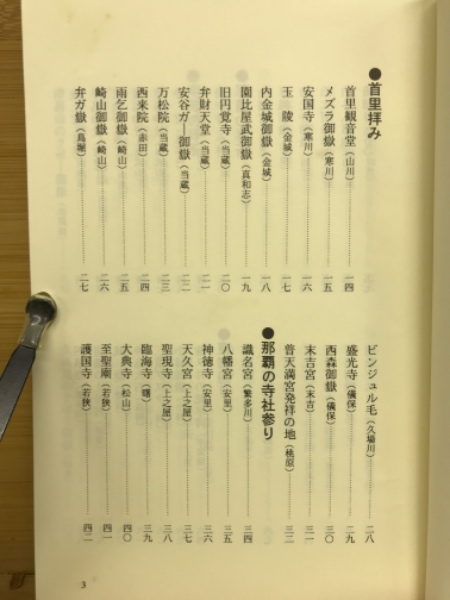 ●首里拝み
首里観音堂(山川)……一四
メズラ御嶽(寒川)……一五
安国寺(寒川)……一六
玉陵(金城)……一七
内金城御嶽(金城)……一八
園比屋武御嶽(真和志)……一九
旧円覚寺(当蔵)……二〇
弁財天堂(当蔵)……二一
安谷ガー御嶽(当蔵)……二二
万松院(当蔵)……二三
西来院(赤田)……二四
雨乞御嶽(崎山)……二五
崎山御嶽(崎山)……二六
弁ガ嶽(鳥堀)……二七
ビンジュル毛(久場川)……二八
盛光寺(儀保)……二九
西森御嶽(儀保)……三〇
末吉宮(末吉)……三一
普天満宮発祥の地(桃原)……三二
●那覇の寺社参り
識名宮(繁多川)……三四
八幡宮(安里)……三五
神徳寺(安里)……三六
天久宮(上之屋)……三七
聖現寺(上之屋)……三八
臨海寺(曙)……三九
大典寺(松山)……四〇
至聖廟(若狭)……四一
護国寺(若狭)……四二
3